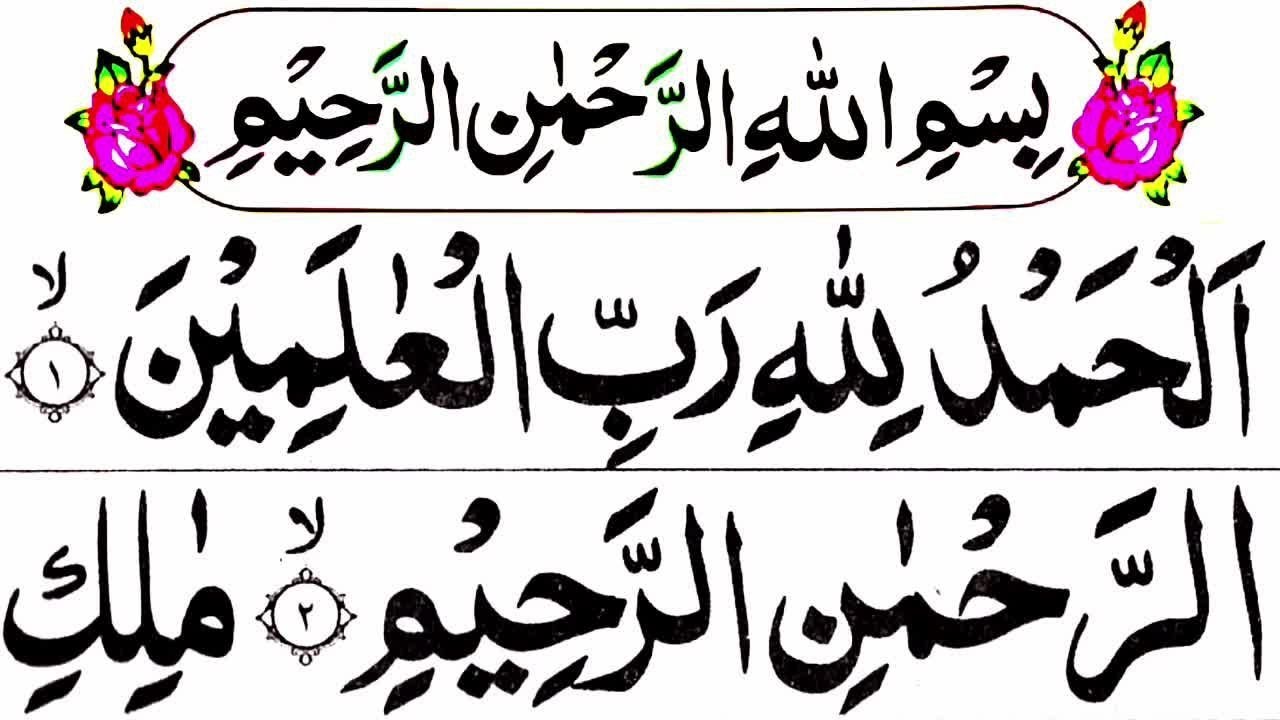 بِسْمِ اللّٰهِ الرَّحْمٰنِ الرَّحِيْمِ
اَلْحَمْدُ لِلّٰهِ رَبِّ الْعٰلَمِيْنَ ۙ ١
الرَّحْمٰنِ الرَّحِيْمِ ۙ ٢ مٰلِكِ